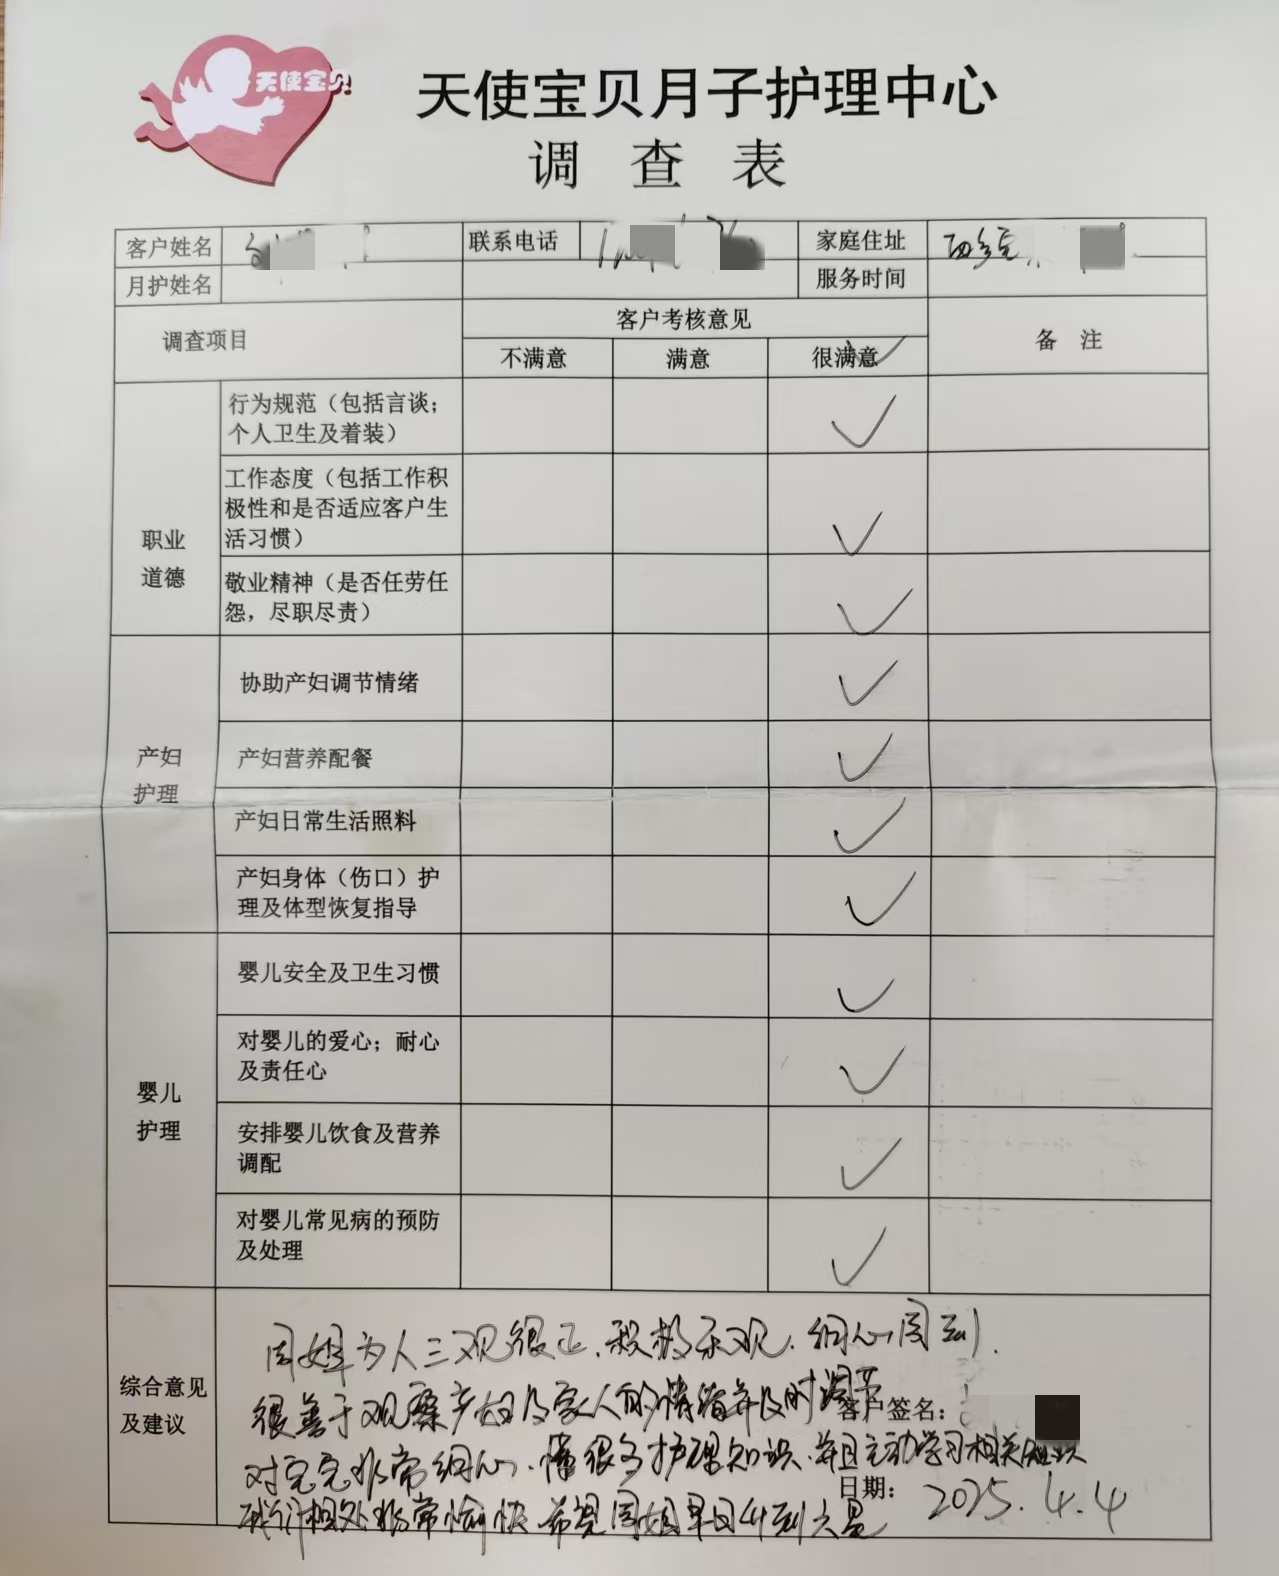 天使宝贝
天使宝贝月子护理中心
调 查 表
客户姓名 联系电话 家庭住址
月护姓名 服务时间
调查项目 客户考核意见 备 注
不满意 满意 很满意
职业
道德
行为规范（包括言谈；
个人卫生及着装）
工作态度（包括工作积
极性和是否适应客户生
活习惯）
敬业精神（是否任劳任
怨，尽职尽责）
产妇
护理
协助产妇调节情绪
产妇营养配餐
产妇日常生活照料
产妇身体（伤口）护
理及体型恢复指导
婴儿
护理
婴儿安全及卫生习惯
对婴儿的爱心；耐心
及责任心
安排婴儿饮食及营养
调配
对婴儿常见病的预防
及处理
综合意见
及建议
周姐为人三观很正、积极乐观、细心周到.
很善于观察产妇及家人的情绪并及时调节
客户签名：
对宝宝非常细心、懂很多护理知识、并且主动学习相关知识
日期： 2025.4.4
我们相处非常愉快 希望周姐早日升到六星